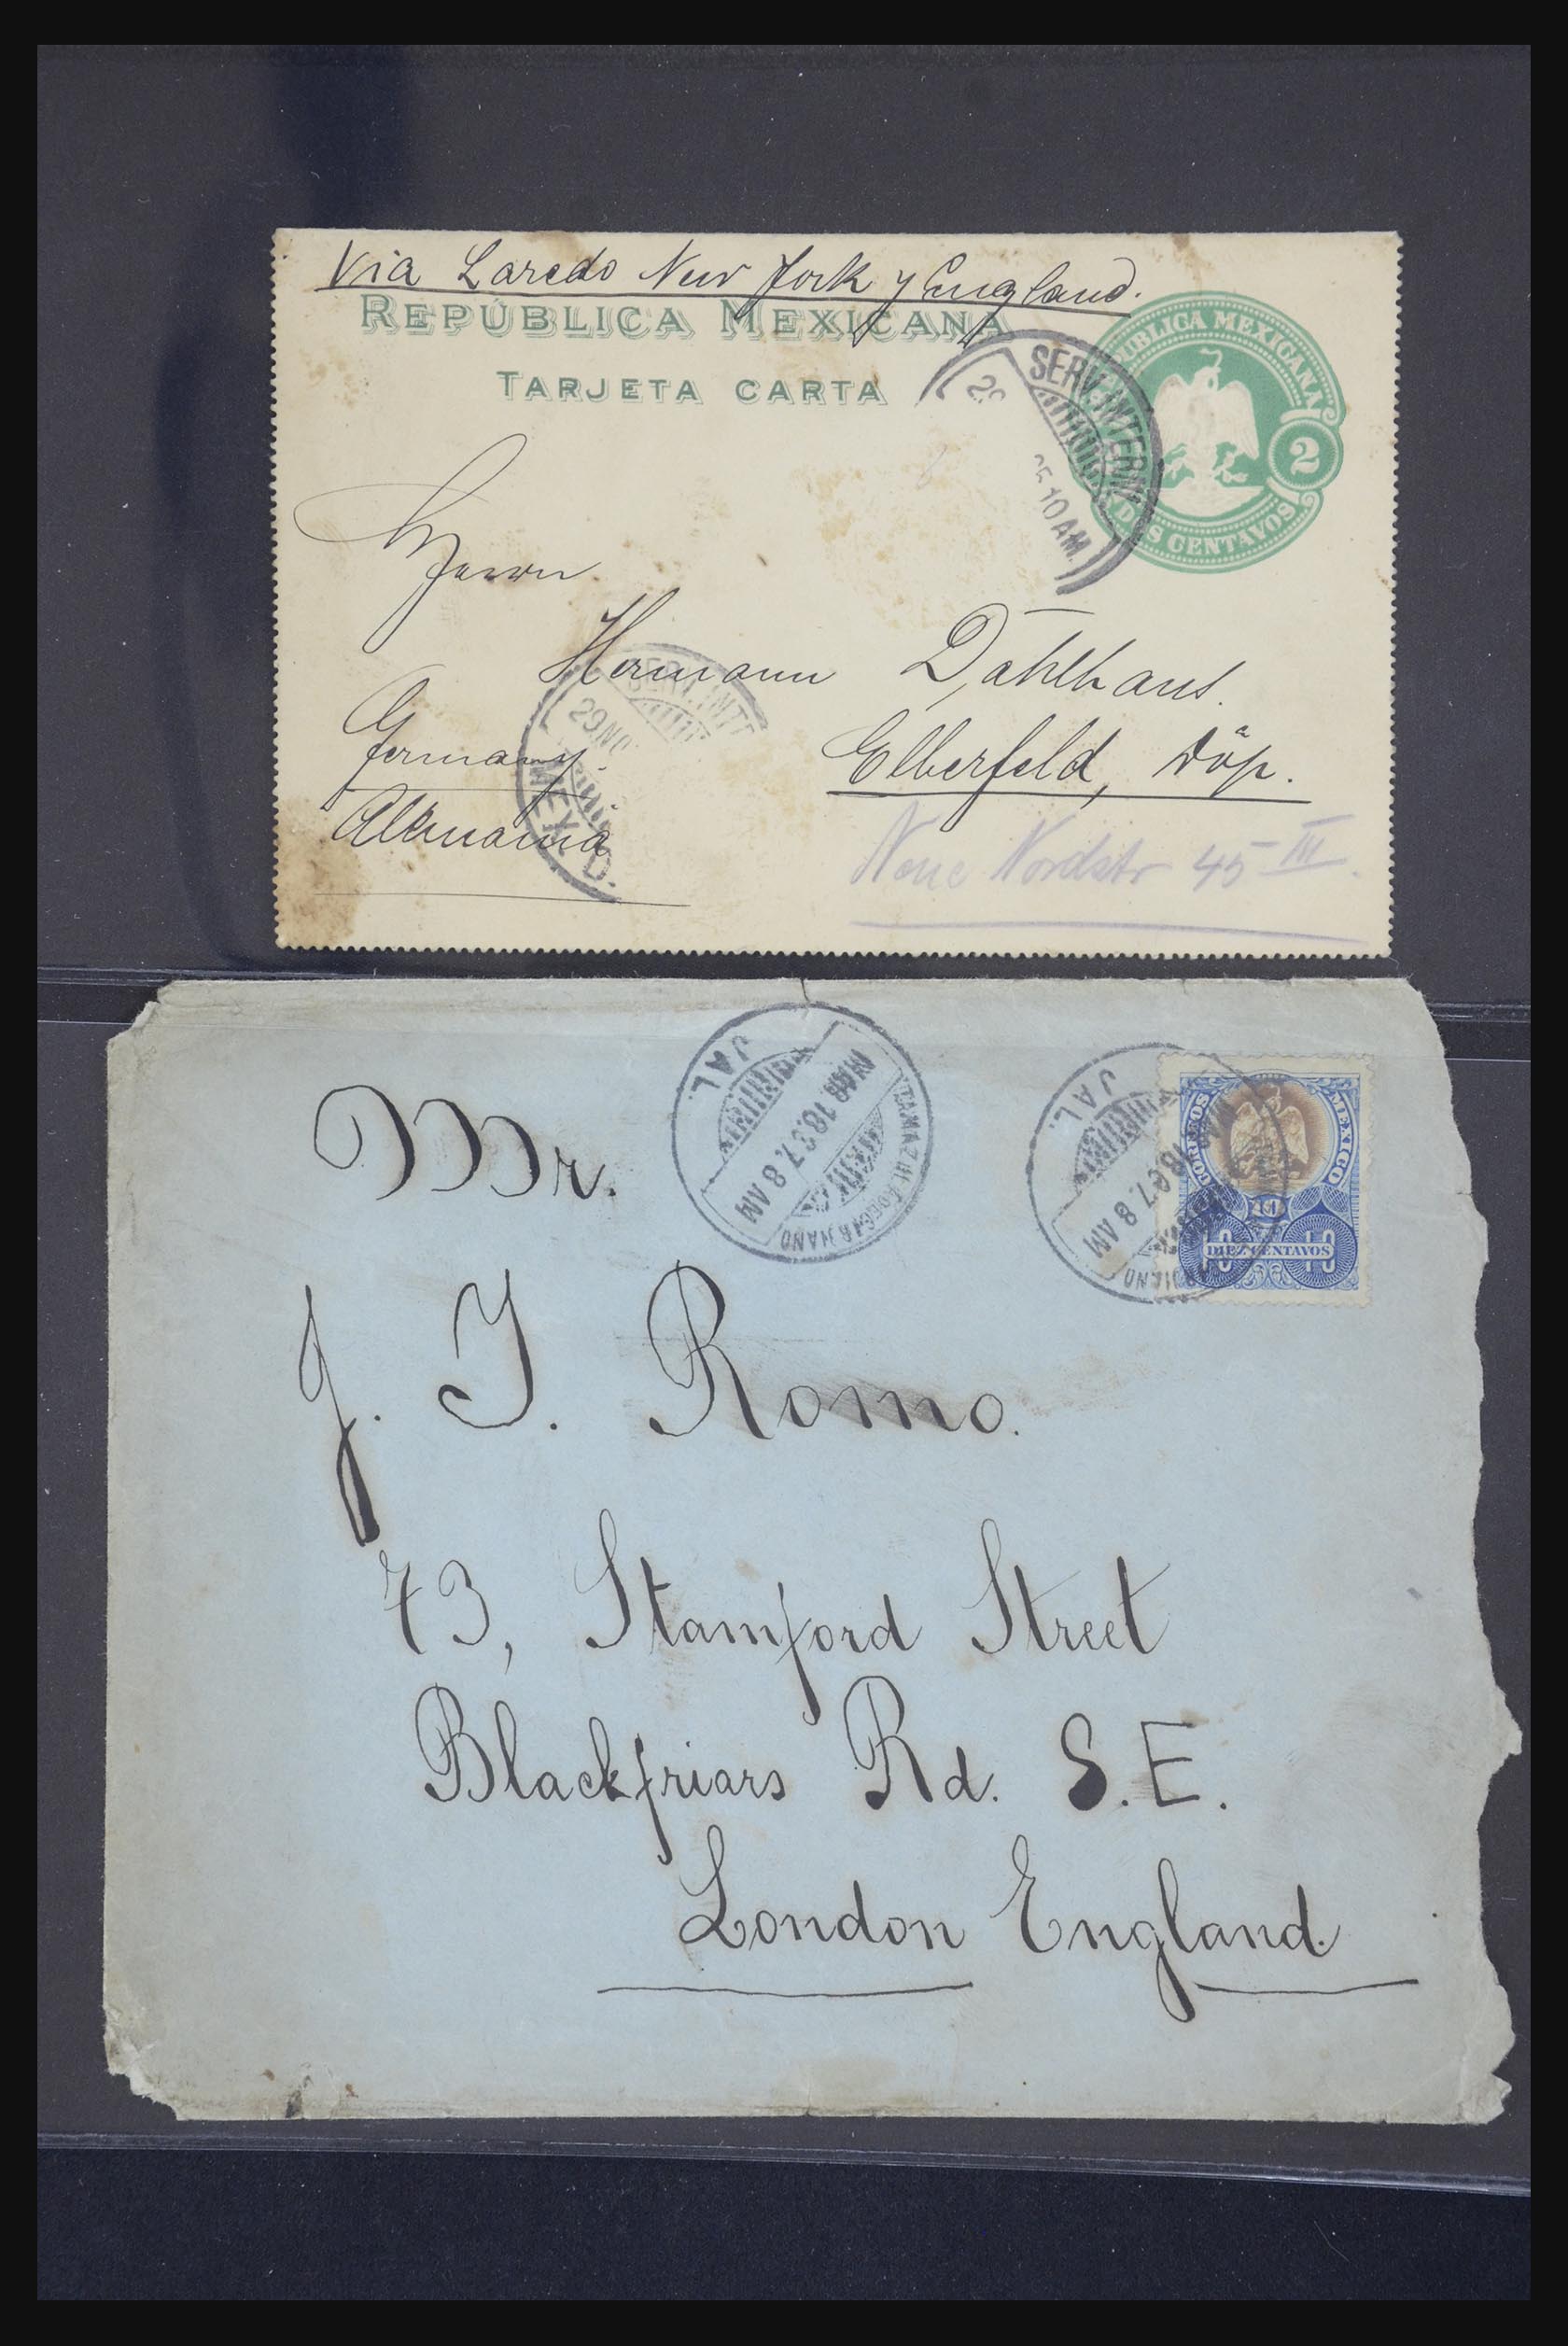 Via Laredo New York y England.
REPÚBLICA MEXICANA
TARJETA CARTA
REPUBLICA MEXICANA
2
DOS CENTAVOS
SERV. INTERN
10 AM.
Herrn
Hermann Dahlhaus.
SERV. INTE
29 NO
MEX. D.
Germany.
Elberfeld, Döp.
Alemania
Neue Nordstr 45 III.
Mr.
JAL.
MAR 18. 07. 8 AM
TAMAZULA DE GORDIANO
JAL.
18. 07. 8 AM
GORDIANO
CORREOS MEXICO
10
10 DIEZ CENTAVOS 10
J. I. Romo.
73, Stamford Street
Blackfriars Rd. S. E.
London England.